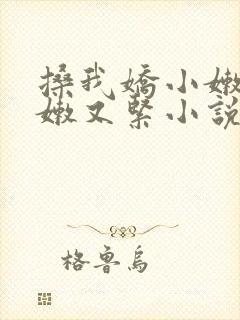 搡我嬌小嫩
嫩又緊小說
格魯烏